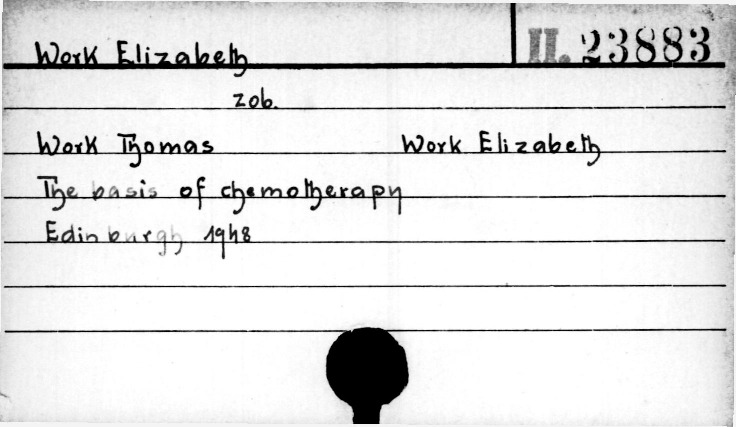 Work Elizabeth
II. 23883
zob.
Work Thomas Work Elizabeth
The basis of chemotherapy
Edinburgh 1948